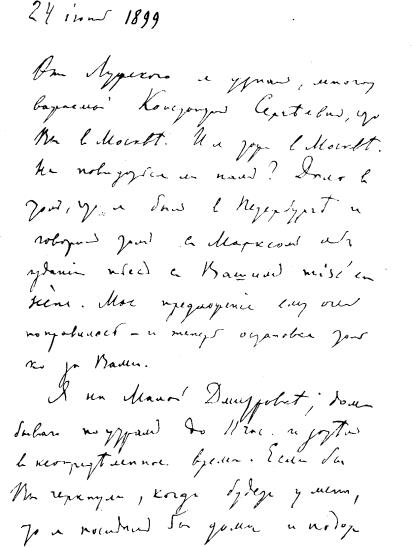 24 июня 1899
От Лужского я узнал, много
уважаемый Константин Сергеевич, что
Вы в Москвѣ. И я тоже в Москвѣ.
Не повидаться ли нам? Дело в
том, что я был в Петербургѣ и
говорил там с Марксом об
издании пьес с Вашими mise en
scène. Мое предложение ему очень
понравилось – и теперь остановка только
за Вами.
Я на Малой Дмитровке; дома
бываю по утрам до 11 час. и потом
в неопределенное время. Если бы
Вы черкнули, когда будете у меня,
то я посидел бы дома и подож